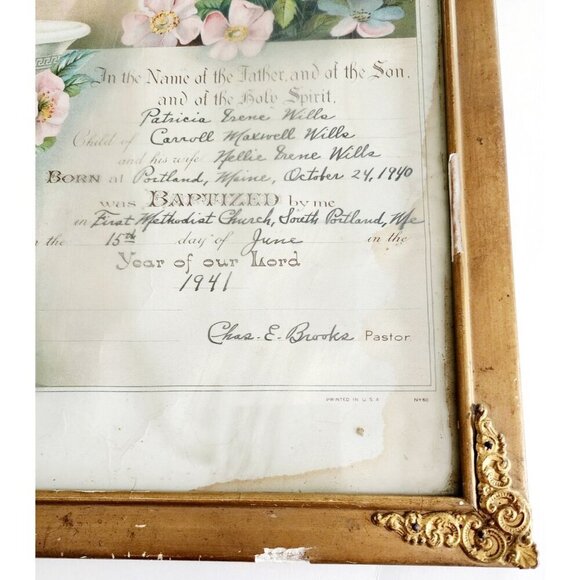 In the Name of the Father, and of the Son,
and of the Holy Spirit,
Patricia Irene Wills
Child of Carroll Maxwell Wills
and his wife Nellie Irene Wills
BORN at Portland, Maine, October 24, 1940
was BAPTIZED by me
in First Methodist Church, South Portland, Me
the 15th day of June in the
Year of our Lord
1941
Chas. E. Brooks Pastor
PRINTED IN U.S.A. NY60